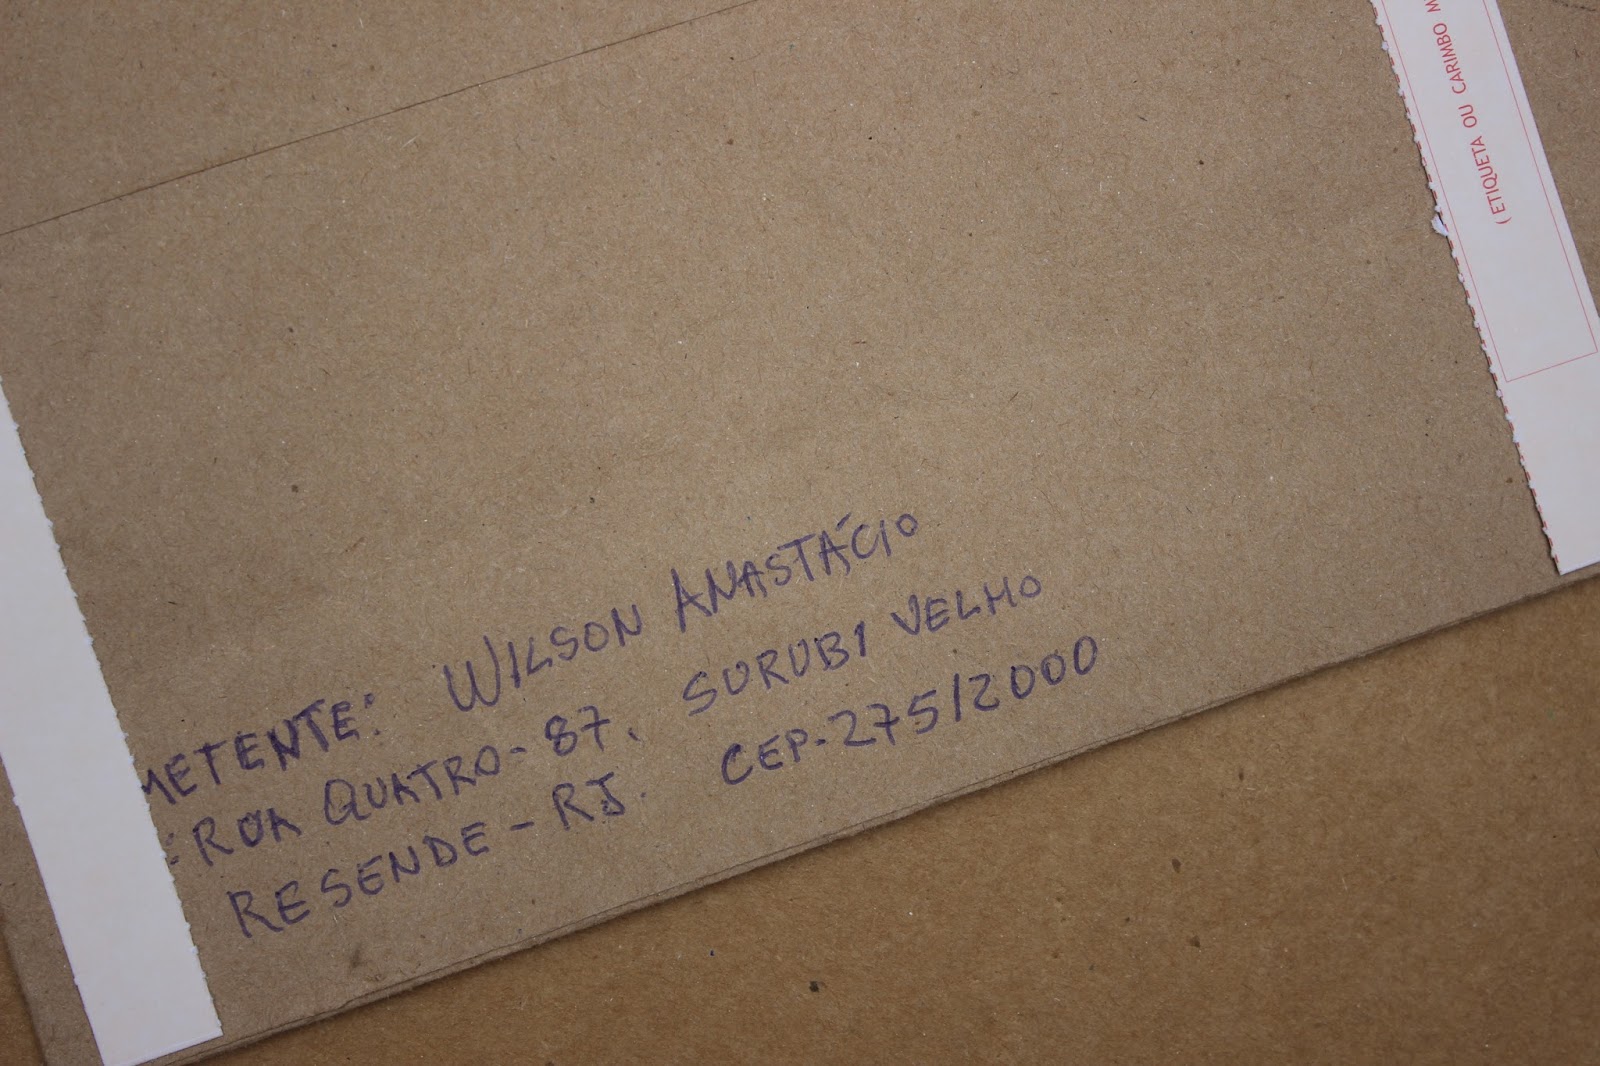 ( ETIQUETA OU CARIMBO M
METENTE: WILSON ANASTÁCIO
: RUA QUATRO-87. SURUBI VELHO
RESENDE-RJ. CEP-275/2000